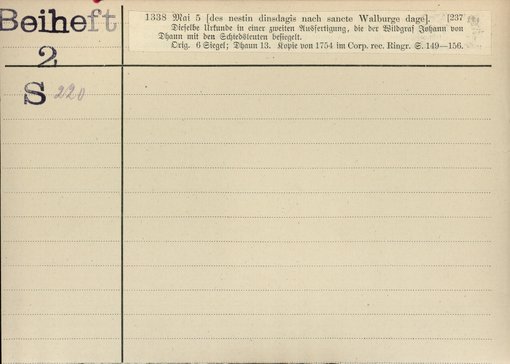 Beiheft
2
S 220
1338 Mai 5 [des nestin dinsdagis nach sancte Walburge dage]. [237
Dieselbe Urkunde in einer zweiten Ausfertigung, die der Wildgraf Johann von
Dhaun mit den Schiedsleuten besiegelt.
Orig. 6 Siegel; Dhaun 13. Kopie von 1754 im Corp. rec. Ringr. S. 149—156.